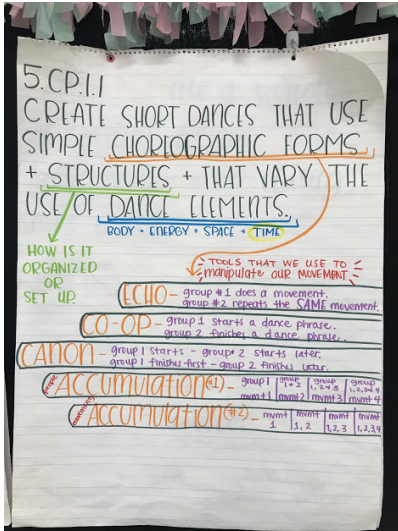 5.CP.1.1
CREATE SHORT DANCES THAT USE
SIMPLE CHOREOGRAPHIC FORMS
+ STRUCTURES + THAT VARY THE
USE OF DANCE ELEMENTS.
BODY + ENERGY + SPACE + TIME
HOW IS IT
ORGANIZED
OR
SET UP
TOOLS THAT WE USE TO
manipulate OUR MOVEMENT
ECHO - group #1 does a movement.
group #2 repeats the SAME movement.
CO-OP - group 1 starts a dance phrase.
group 2 finishes a dance phrase.
CANON - group 1 starts - group 2 starts later.
group 1 finishes first - group 2 finishes later.
people
Accumulation (#1) - group 1 | group 1 + 2 | group 1, 2 + 3 | group 1, 2, 3 + 4
mvmt 1 | mvmt 2 | mvmt 3 | mvmt 4
movement
Accumulation (#2) - mvmt | mvmt | mvmt | mvmt
1 | 1, 2 | 1, 2, 3 | 1, 2, 3, 4